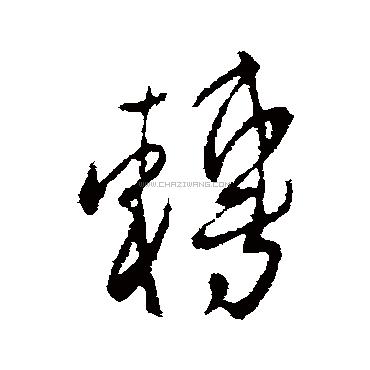 轉
WWW.CHAZIWANG.COM